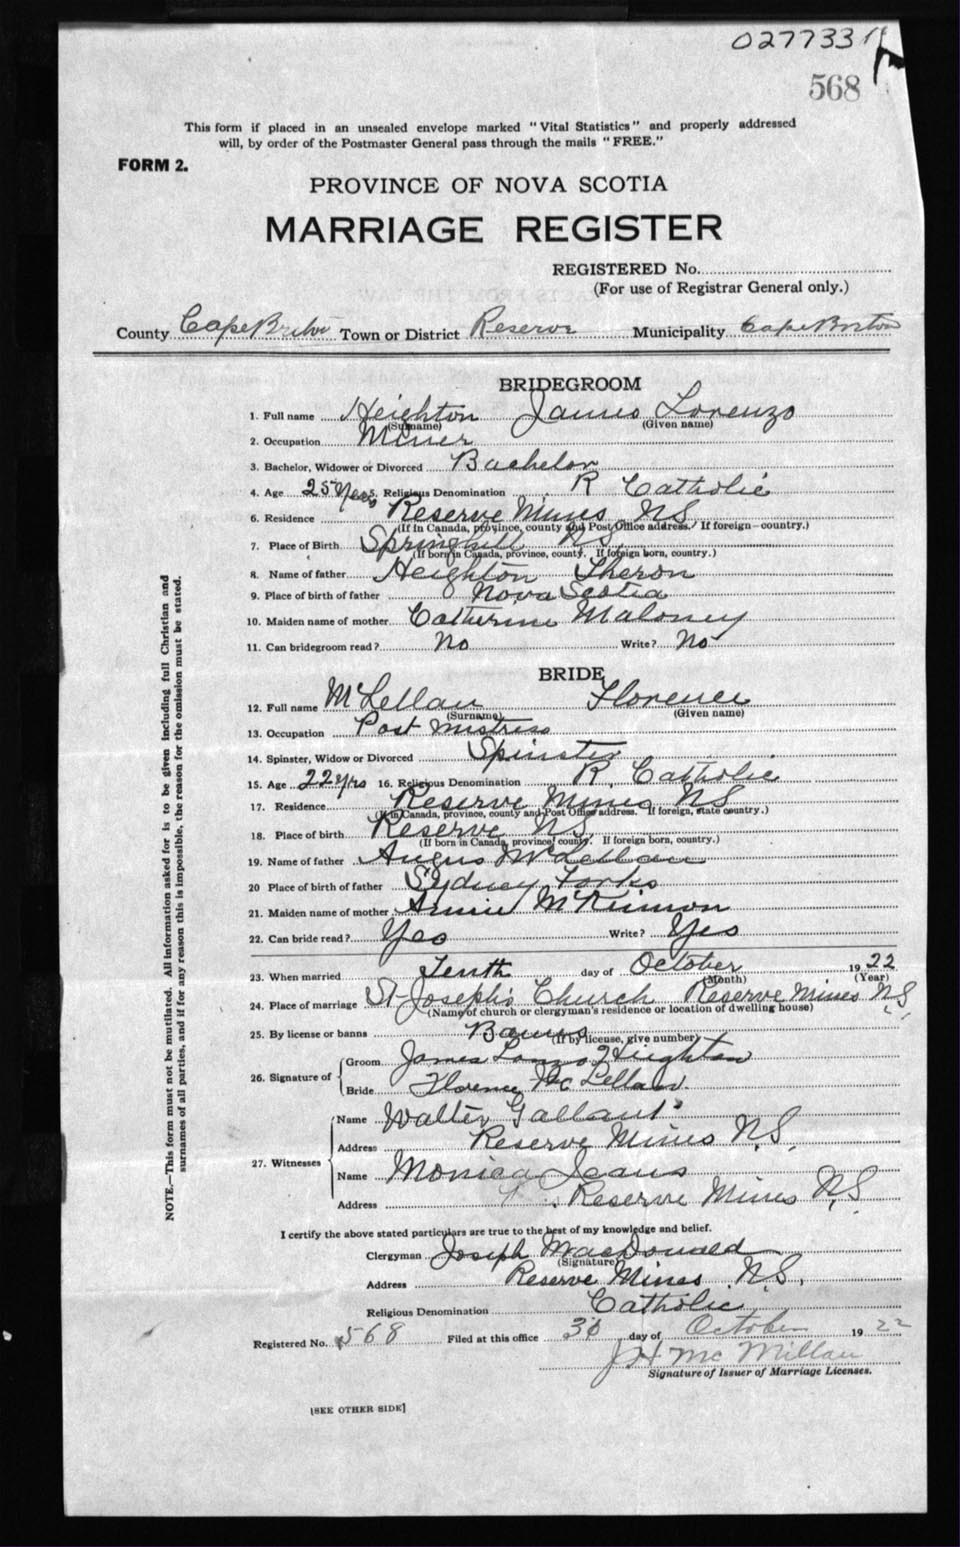 027733
568
This form if placed in an unsealed envelope marked "Vital Statistics" and properly addressed
will, by order of the Postmaster General pass through the mails "FREE."
FORM 2.
PROVINCE OF NOVA SCOTIA
MARRIAGE REGISTER
REGISTERED No.
(For use of Registrar General only.)
County Cape Breton Town or District Reserve Municipality Cape Breton
BRIDEGROOM
1. Full name Heighton James Lorenzo
(Surname) (Given name)
2. Occupation Miner
3. Bachelor, Widower or Divorced Bachelor
4. Age 25 Years 5. Religious Denomination R Catholic
6. Residence Reserve Mines NS
(If in Canada, province, county and Post Office address. If foreign—country.)
7. Place of Birth Springhill NS
(If born in Canada, province, county. If foreign born, country.)
8. Name of father Heighton Theron
9. Place of birth of father Nova Scotia
10. Maiden name of mother Catherine Maloney
11. Can bridegroom read? No Write? No
BRIDE
12. Full name McLellan Florence
(Surname) (Given name)
13. Occupation Post Mistress
14. Spinster, Widow or Divorced Spinster
15. Age 22 yrs 16. Religious Denomination R. Catholic
17. Residence Reserve Mines NS
(If in Canada, province, county and Post Office address. If foreign, state country.)
18. Place of birth Reserve NS
(If born in Canada, province, county. If foreign born, country.)
19. Name of father Angus McLellan
20 Place of birth of father Sydney Forks
21. Maiden name of mother Annie McKinnon
22. Can bride read? Yes Write? Yes
23. When married Tenth day of October 1922
(Month) (Year)
24. Place of marriage St Joseph's Church Reserve Mines NS
(Name of church or clergyman's residence or location of dwelling house)
25. By license or banns Banns
(If by license, give number)
26. Signature of
Groom James Heighton
Bride Florence McLellan
27. Witnesses
Name Walter Gallant
Address Reserve Mines N.S.
Name Monica Jeans
Address Reserve Mines N.S.
I certify the above stated particulars are true to the best of my knowledge and belief.
Clergyman Joseph MacDonald
(Signature)
Address Reserve Mines N.S.
Religious Denomination Catholic
Registered No. 568 Filed at this office day of October 1922
J H McMillan
Signature of Issuer of Marriage Licenses.
[SEE OTHER SIDE]
NOTE.—This form must not be mutilated. All information asked for is to be given including full Christian and
surnames of all parties, and if for any reason this is impossible, the reason for the omission must be stated.